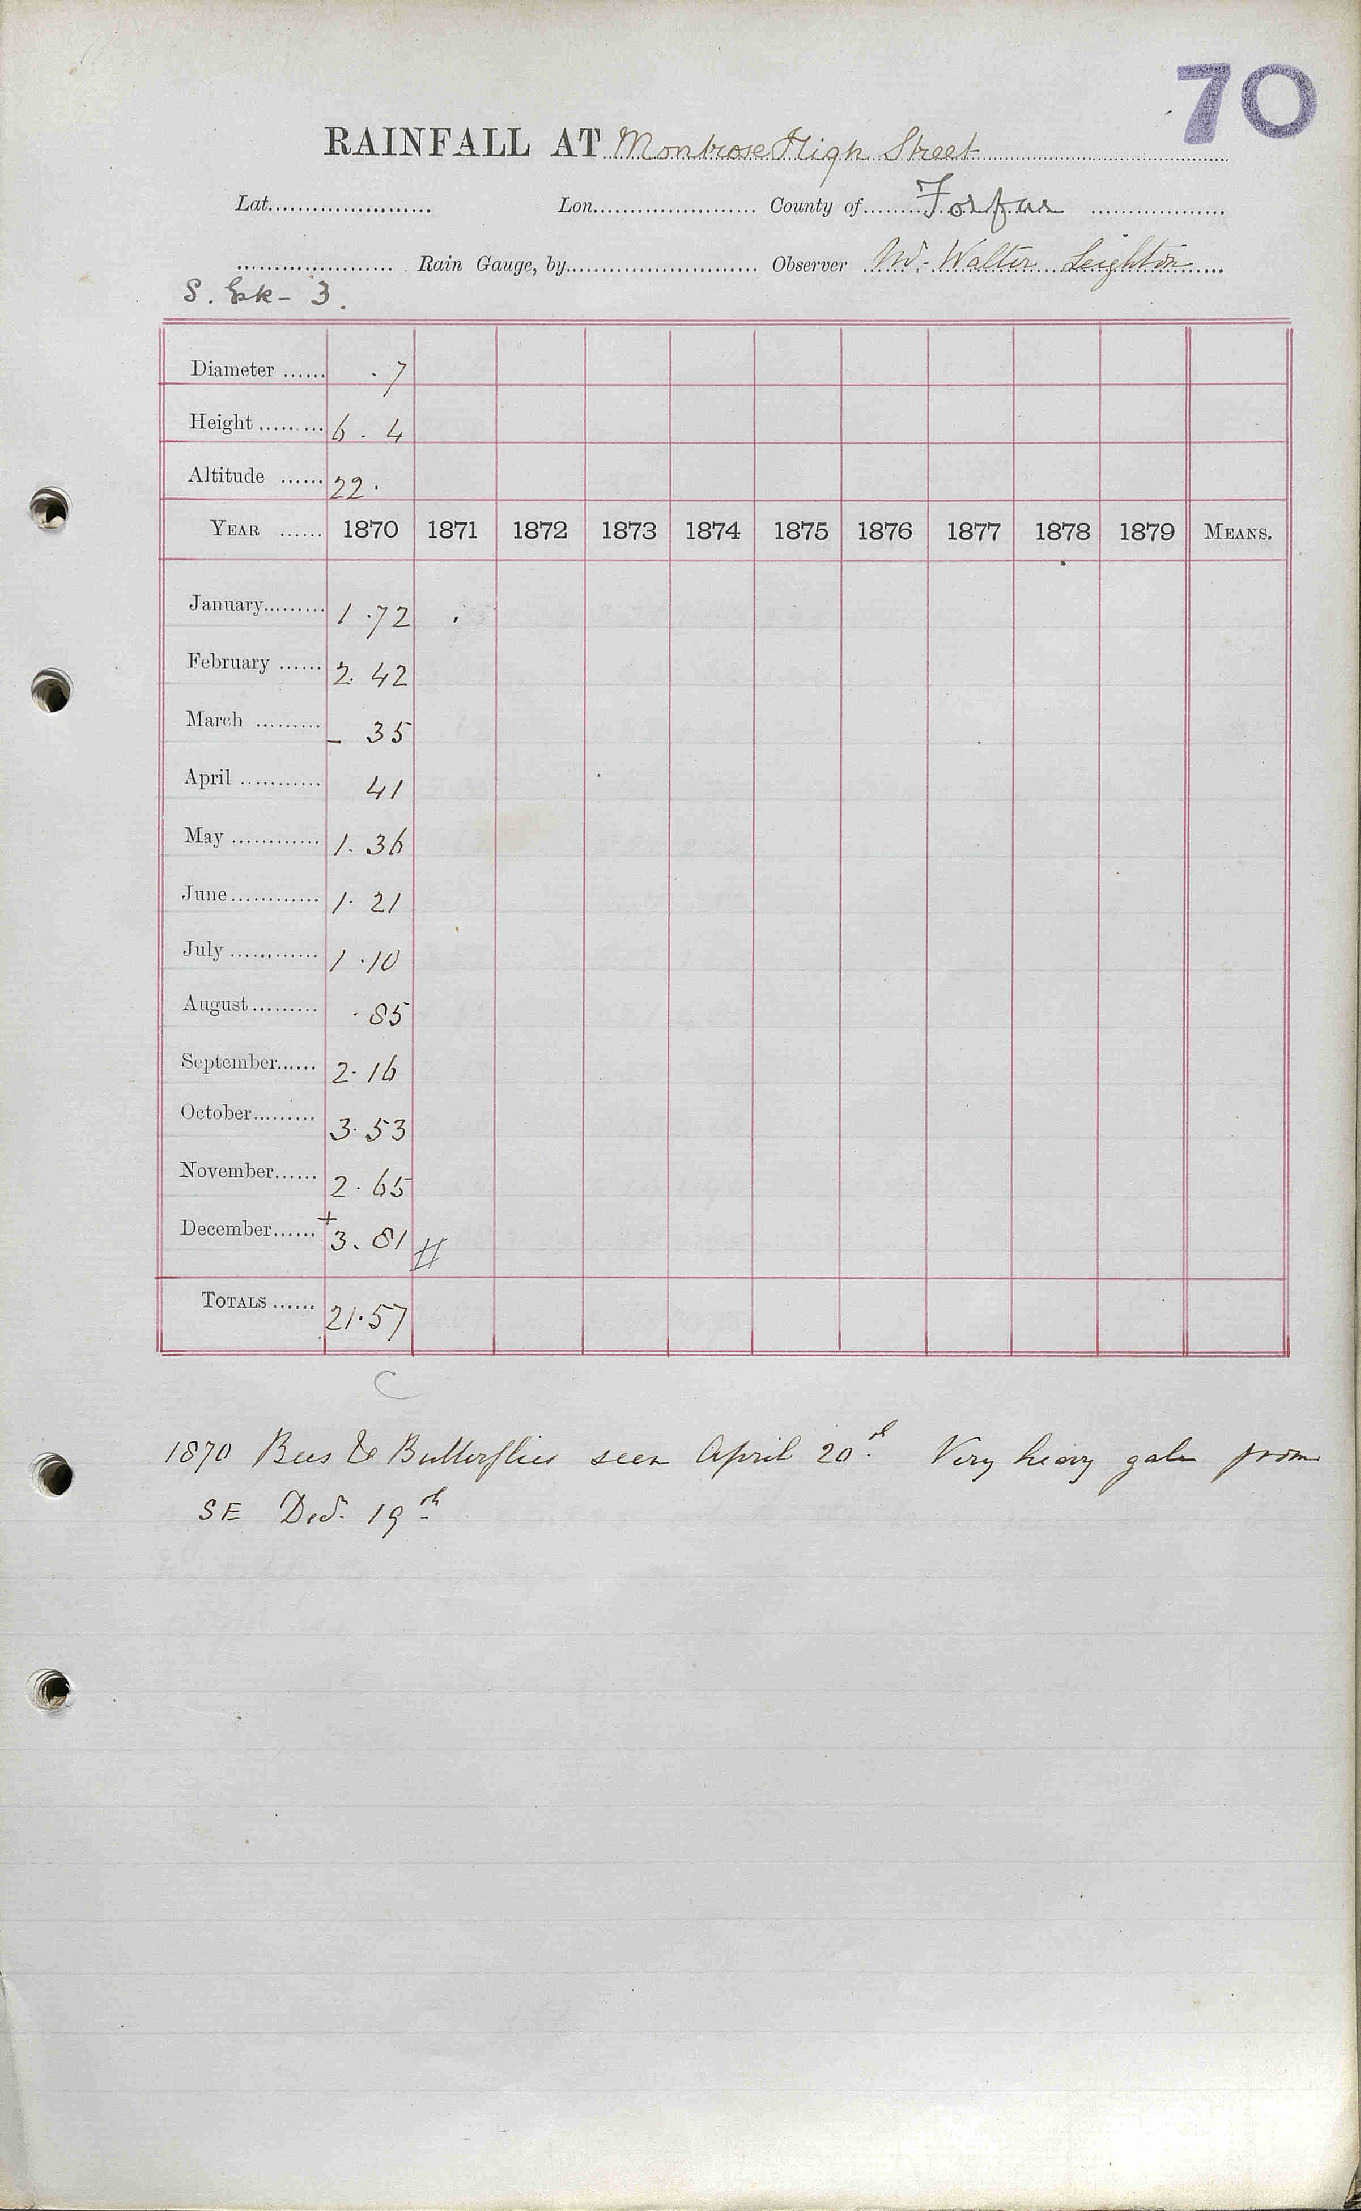 70
RAINFALL AT Montrose High Street
Lat. Lon. County of Forfar
Rain Gauge, by Observer Mr. Walter Leighton
S. Esk - 3.
Diameter ...... .7
Height ......... 6. 4
Altitude ...... 22.
YEAR ...... 1870 1871 1872 1873 1874 1875 1876 1877 1878 1879 MEANS.
January......... 1.72
February ...... 2.42
March ......... - 35
April ........... 41
May ............ 1.36
June............ 1.21
July ............ 1.10
August......... .85
September...... 2.16
October......... 3.53
November...... 2.65
December...... + 3.81 #
TOTALS ...... 21.57
C
1870 Bees & Butterflies seen April 20th. Very heavy gale from
SE Decr. 19th